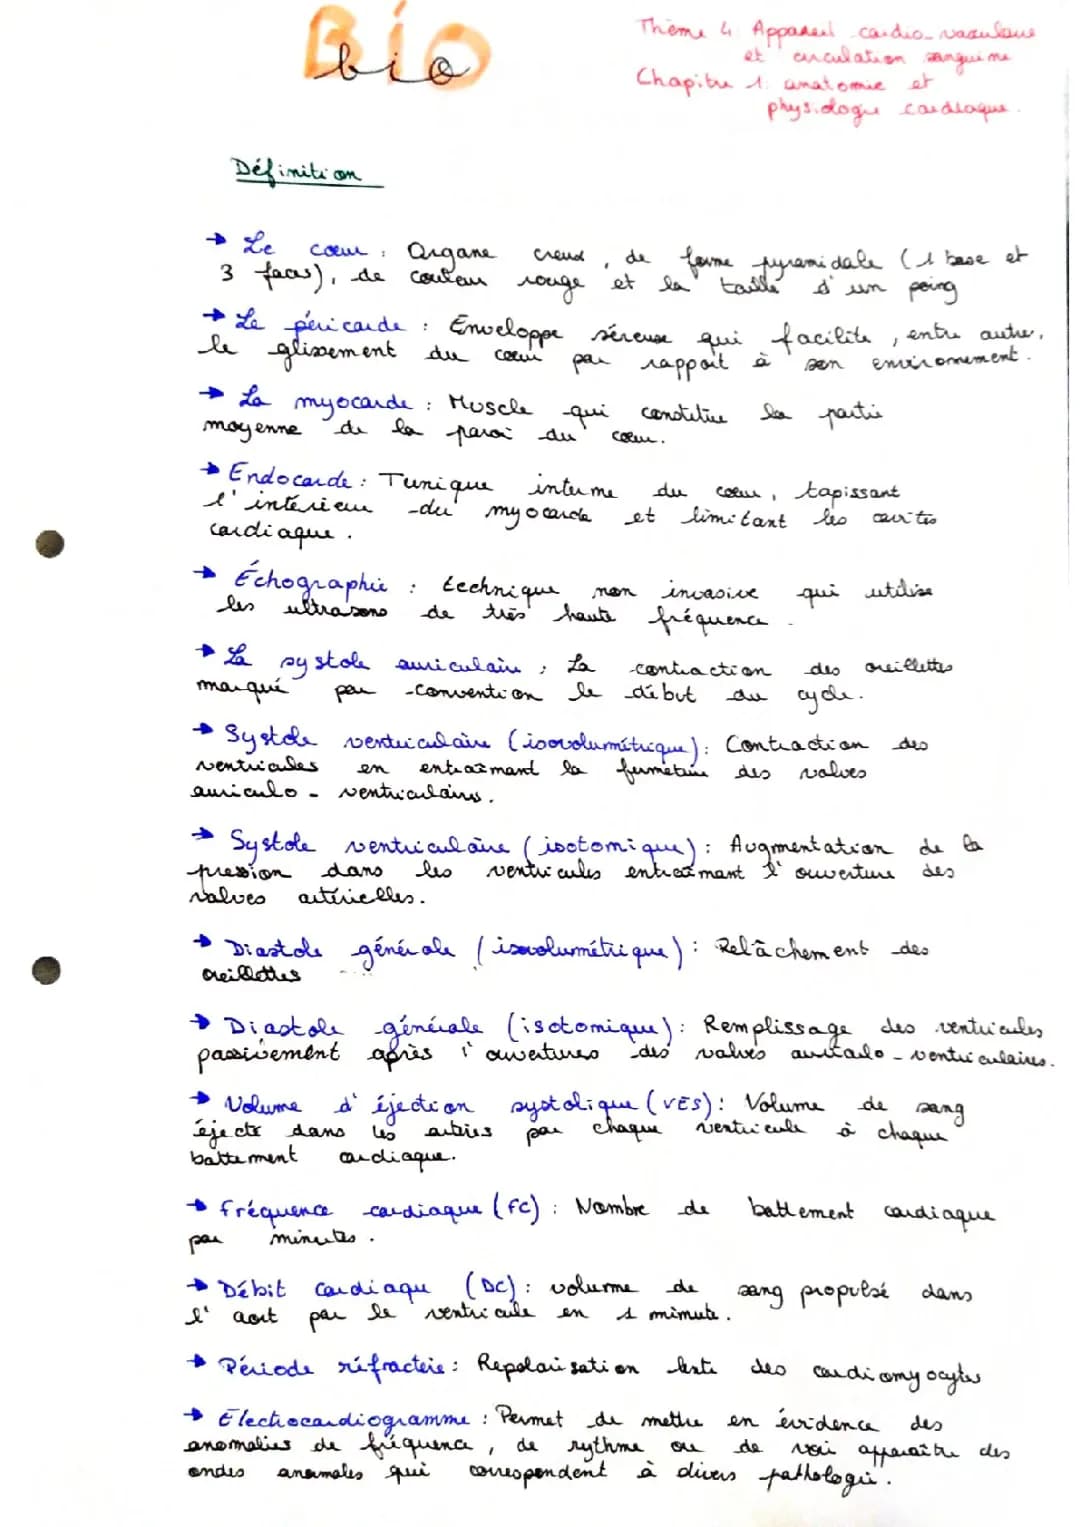 Bio
bio
Thème 4: Appareil cardio-vasculaire
et circulation sanguine
Chapitre 1: anatomie et
physiologie cardiaque.
Définition
→ Le cœur : Organe creux, de forme pyramidale (1 base et
3 faces), de couleur rouge et la taille d'un poing
→ Le péricarde : Enveloppe séreuse qui facilite, entre autre,
le glissement du cœur par rapport à son environnement.
→ La myocarde : Muscle qui constitue la partie
moyenne de la paroi du cœur.
→ Endocarde : Tunique interne du cœur, tapissant
l'intérieur du myocarde et limitant les cavités
cardiaque.
→ Échographie : technique non invasive qui utilise
les ultrasons de très haute fréquence.
→ La systole auriculaire : La contraction des oreillettes
marqué par convention le début du cycle.
→ Systole ventriculaire (isovolumétrique) : Contraction des
ventricules en entraînant la fermeture des valves
auriculo-ventriculaires.
→ Systole ventriculaire (isotomique) : Augmentation de la
pression dans les ventricules entraînant l'ouverture des
valves artérielles.
→ Diastole générale (isovolumétrique) : Relâchement des
oreillettes
→ Diastole générale (isotomique) : Remplissage des ventricules
passivement après l'ouvertures des valves auriculo-ventriculaires.
→ Volume d'éjection systolique (VES) : Volume de sang
éjecté dans les artères par chaque ventricule à chaque
battement cardiaque.
→ Fréquence cardiaque (FC) : Nombre de battement cardiaque
par minutes.
→ Débit cardiaqu (DC) : volume de sang propulsé dans
l'aort par le ventricule en 1 minute.
→ Période réfractere : Repolarisation lente des cardiomyocytes
→ Électrocardiogramme : Permet de mettre en évidence des
anomalies de fréquence, de rythme ou de voir apparaître des
ondes anormales qui correspondent à divers pathologie.